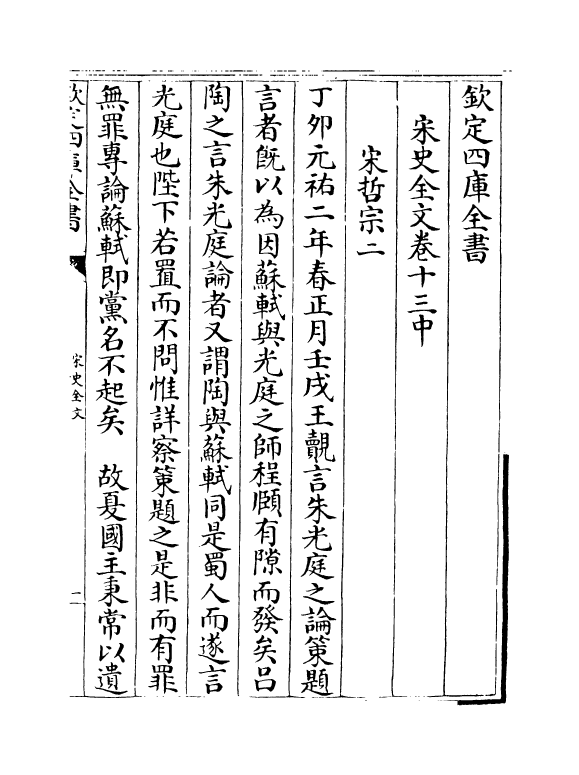 欽定四庫全書
宋史全文卷十三中
宋哲宗二
丁卯元祐二年春正月壬戌王覿言朱光庭之論策題
言者既以為因蘇軾與光庭之師程頤有隙而發矣吕
陶之言朱光庭論者又謂陶與蘇軾同是蜀人而遂言
光庭也陛下若置而不問惟詳察策題之是非而有罪
無罪專論蘇軾即黨名不起矣　故夏國主秉常以遺
欽定四庫全書
宋史全文